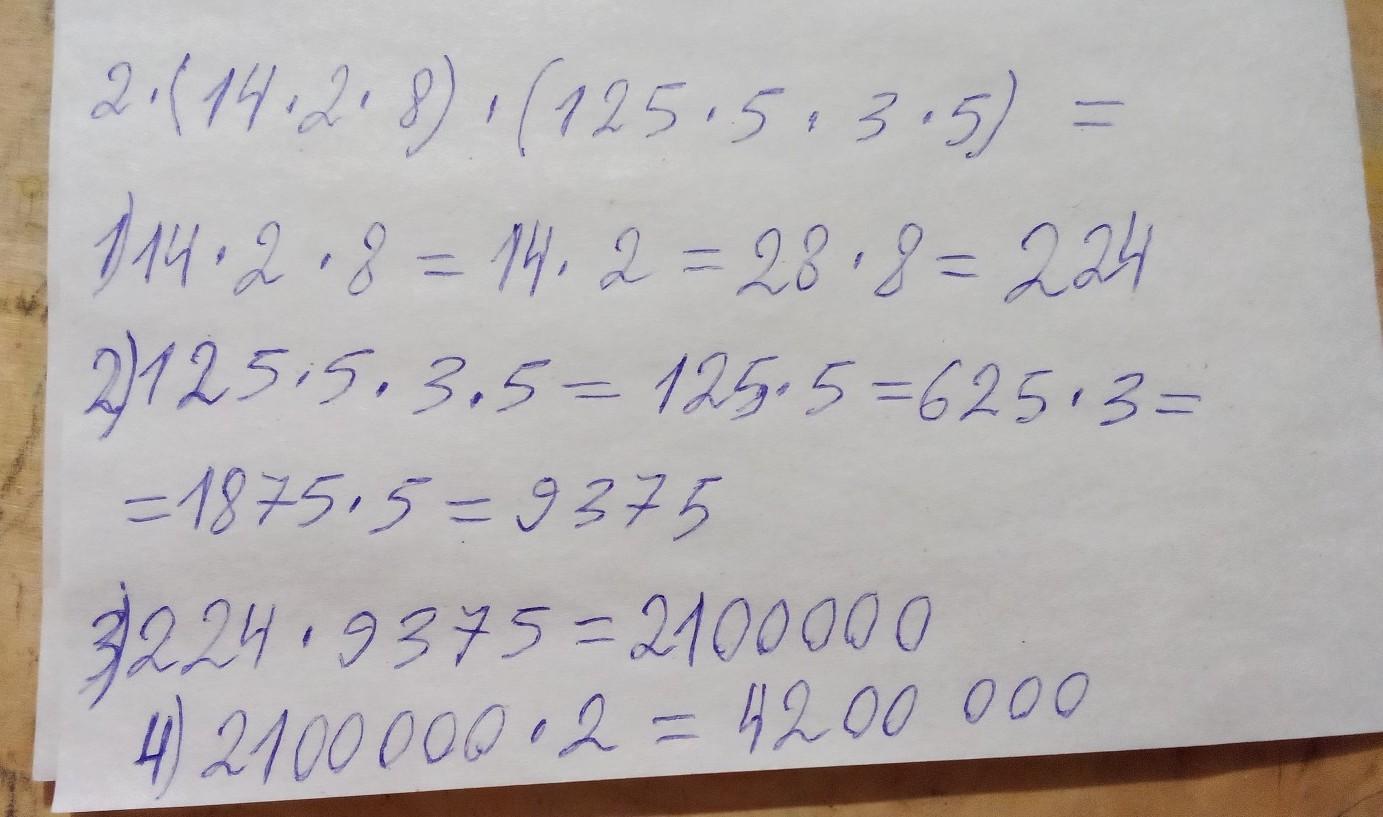 2·(14·2·8)·(125·5·3·5) =
1)14·2·8 = 14·2 = 28·8 = 224
2)125·5·3·5 = 125·5 = 625·3 =
= 1875·5 = 9375
3)224·9375 = 2100000
4)2100000·2 = 4200 000